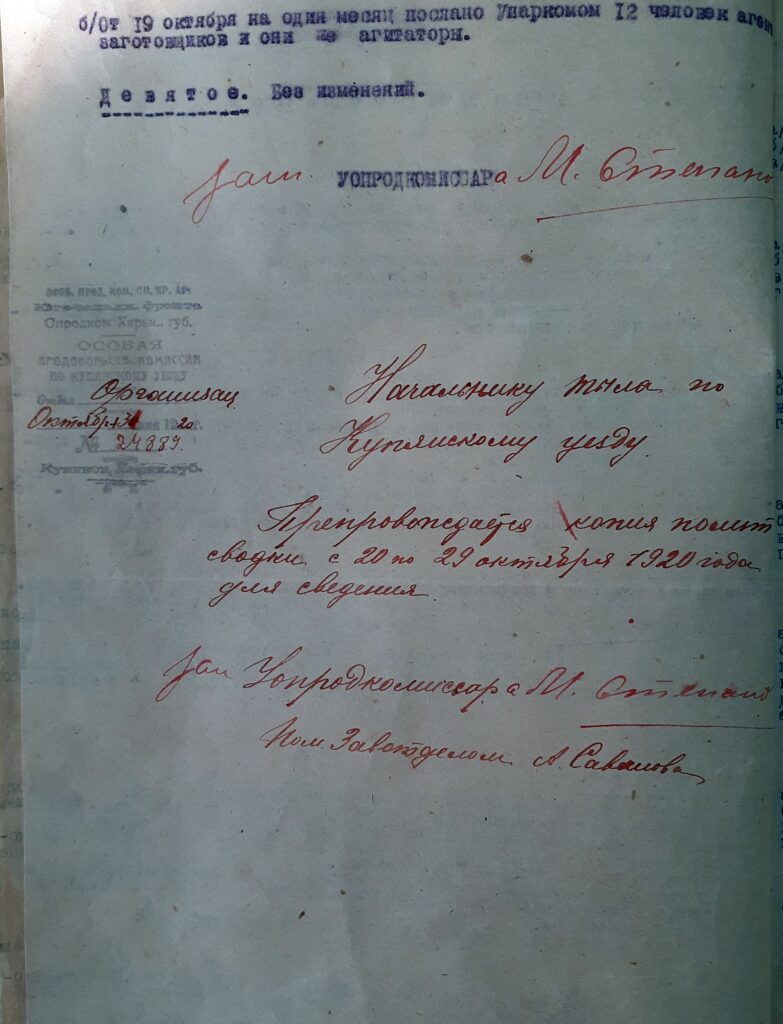 б/От 19 октября на один месяц послано Упаркомом 12 человек аген
заготовщиков и они не агитаторы.
Девятое. Без изменений.
Зам. УОПРОДКОМИССАРа М. Степано
ОСОБ. ПРОД. КОМ. СН. КР. АР.
Юго-западн. фронта
Опродком Харьк., губ.
ОСОБАЯ
ПРОДОВОЛЬСТ. КОМИССИЯ
ПО КУПЯНСКОМУ УЕЗДУ
Отдел Организац
Октября 31 дня 1920г.
№ 24889.
Купянск, Харьк. губ.
Начальнику тыла по
Купянскому уезду.
Препровождается копия полит
сводки с 20 по 29 октября 1920 года
для сведения
Зам Уопродкомиссара М. Степано
Пом. Завотделом А. Савамова